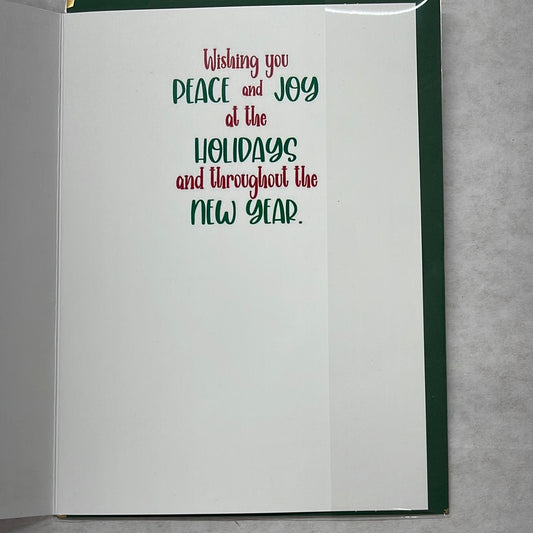 Wishing you
PEACE and JOY
at the
HOLIDAYS
and throughout the
NEW YEAR.